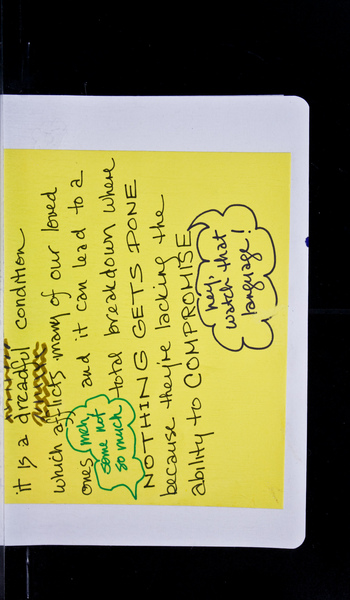 it is a dreadful condition
which afflicts many of our loved
ones and it can lead to a
meh,
some not
so much
total breakdown where
NOTHING GETS DONE
because they're lacking the
ability to COMPROMISE
hey,
watch that
language!